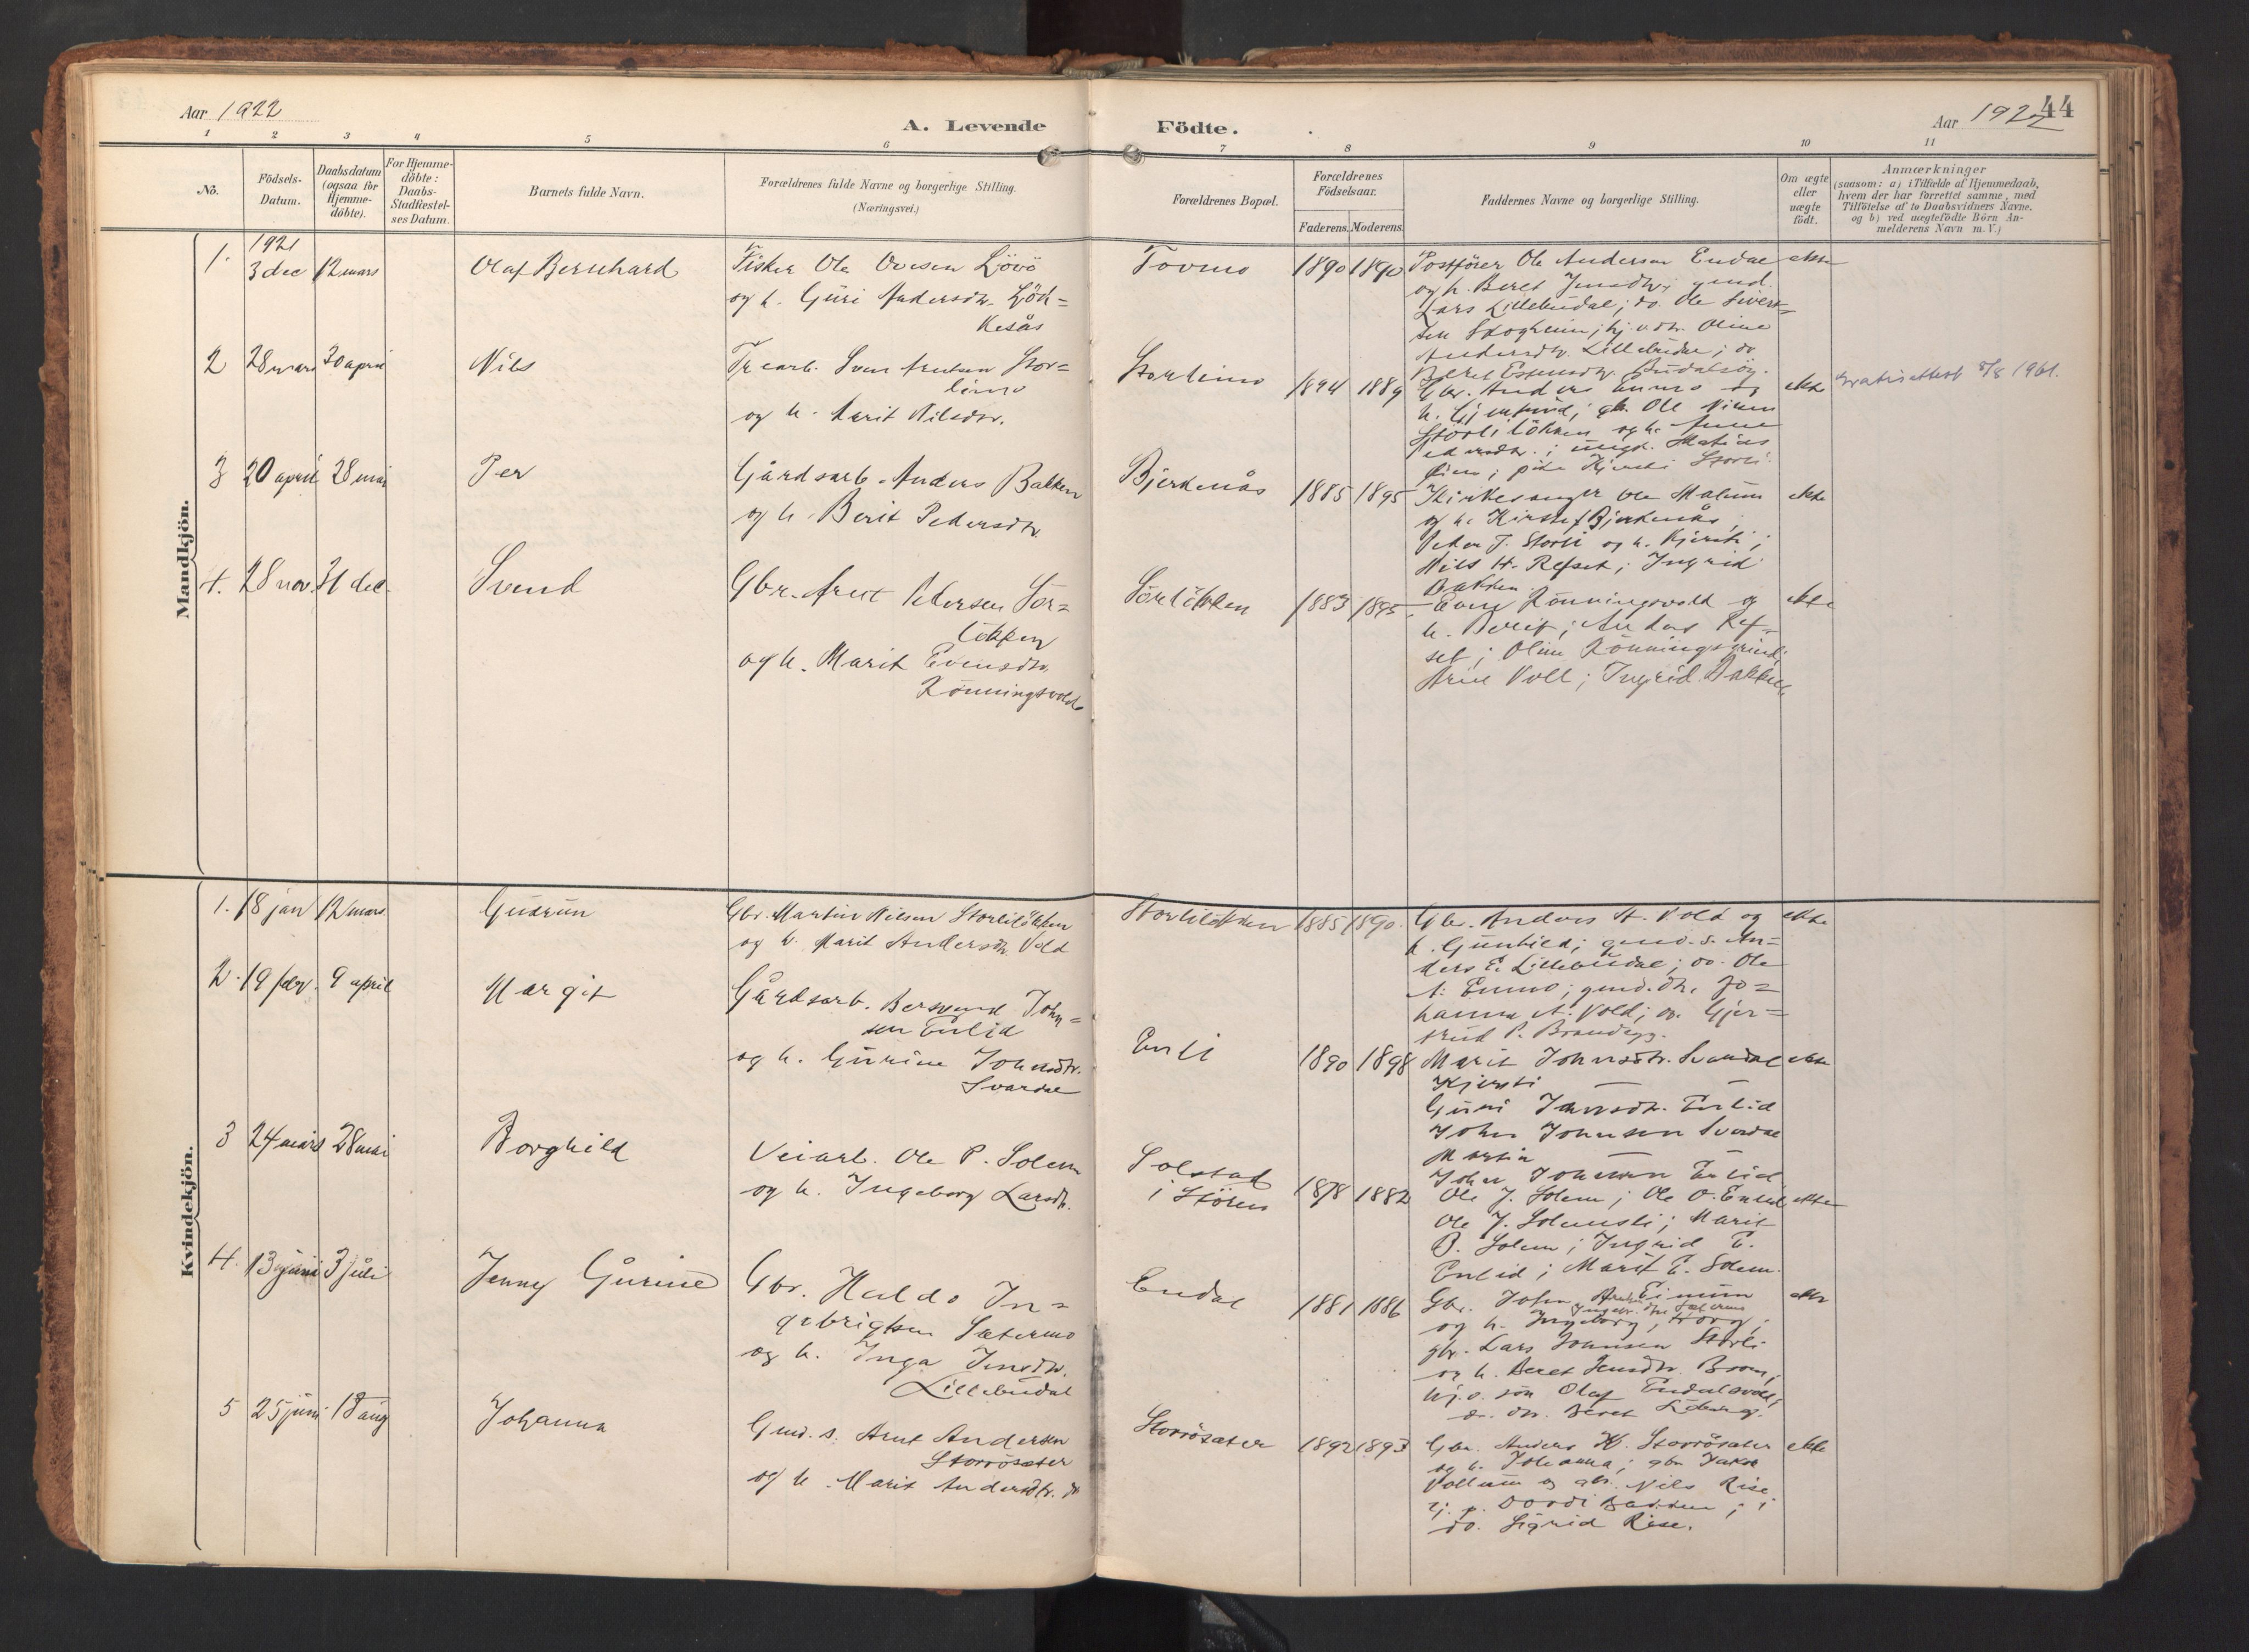 Aar 1922
A. Levende Födte.
Aar 1922
44
1 2 3 4 5 6 7 8 9 10 11
No.
Födsels-
Datum.
Daabsdatum
(ogsaa for
Hjemme-
döbte).
For Hjemme-
döbte:
Daabs-
Stadfæstel-
ses Datum.
Barnets fulde Navn.
Forældrenes fulde Navne og borgerlige Stilling.
(Næringsvei.)
Forældrenes Bopæl.
Forældrenes
Födselsaar.
Faderens. Moderens.
Faddernes Navne og borgerlige Stilling.
Om ægte
eller
uægte
födt.
Anmærkninger
(saasom: a) i Tilfælde af Hjemmedaab,
hvem der har forrettet samme, med
Tilföielse af to Daabsvidners Navne,
og b) ved uægtefödte Börn An-
melderens Navn m. V.)
Mandkjön.
1. 1921
3 dec 12 mars
Olaf Bernhard
Fisker Ole Ovesen Ljövö
og h. Guri Andersdtr. Lök-
kesås
Tovmo
1890 1890
Postförer Ole Andersen Endal
og h. Beret Jensdtr; gmd.
Lars Lillebudal; do. Ole Sivert-
sen Skogheim; hj. v. dtr. Oline
Andersdtr. Lillebudal; do
Beret Estensdtr. Budalsöy.
ekte
2 28 mars 30 april
Nils
Trearb. Sven Arntsen Stor-
limo
og h. Marit Nilsdtr.
Storlimo
1894 1889
Gbr. Anders Enmo og
h. Gjertrud; gb. Ole Nilsen
Storlilökken og h. Anne
Pedersdtr.; ungk. Matias
pike Kjersti Storli.
ekte
Gratisattest 5/8 1961.
3 20 april 28 mai
Per
Gårdsarb. Anders Bakken
og h. Berit Pedersdtr.
Bjerknås
1885 1895
Kirkesanger Ole Malum
og h. Kirstef Bjerknås;
Peder J. Storli og h. Kjersti;
Nils H. Refset; Ingrid
Bakken.
ekte
4. 28 nov. 31 dec.
Svend
Gbr. Arnt Pedersen Sör-
lökken
og h. Marit Evensdtr.
Rönningsvold
Sörlökken
1883 1895
Even Rönningsvold og
h. Berit; Anders Ref-
set; Oline Rönningsgrind;
Arne Voll; Ingrid Bakken
ekte
Kvindekjön.
1. 18 jan 12 mars
Gudrun
Gbr. Martin Nilsen Storlilökken
og h. Marit Andersdtr. Vold
Storlilökken
1885 1890.
Gbr. Anders A. Vold og
h. Gunhild; gmd. s. An-
ders E. Lillebudal; do. Ole
A. Enmo; gmd. dtr. Jo-
hanna A. Vold; do. Gjer-
trud P. Brandegg.
ekte
2. 19 febr. 9 april
Margit
Gårdsarb. Bersvend John-
sen Enlid
og h. Gurine Johnsdtr.
Svardal
Enli
1890 1898
Marit Johnsdtr. Svardal
Kjersti — —
Guri Johnsdtr. Enlid
John Johnsen Svardal
Martin — —
John Johnsen Enlid
ekte
3 24 mars 28 mai
Borghild
Veiarb. Ole P. Solem
og h. Ingeborg Larsdtr.
Solstad
i Stören
1878 1882
Ole J. Solem; Ole O. Enlid
Ole J. Solemsli; Marit
B. Solem; Ingrid E.
Enlid; Marit E. Solem.
ekte
4. 13 juni 3 juli
Jenny Gurine
Gbr. Haldo In-
gebrigtsen Sætermo
og h. Inga Jensdtr.
Lillebudal
Endal
1881 1886
Gbr. John Eimun
og h. Ingeborg, Horg;
gbr. Lars Johnsen Storli
og h. Beret Jensdtr. Broen;
hj. v. sön Olaf Endalsvold;
do. dtr. Beret
ekte
5 25 juni 13 aug
Johanna
Gmd. s. Arnt Andersen
Storrösæter
og h. Marit Andersdtr. do
Storrösæter
1892 1893
Gbr. Anders H. Storrösæter
og h. Johanna; gbr. Jakob
Vollum og gbr. Nils Rise
hj. p. Dordi Bakken;
do. Sigrid Rise.
ekte